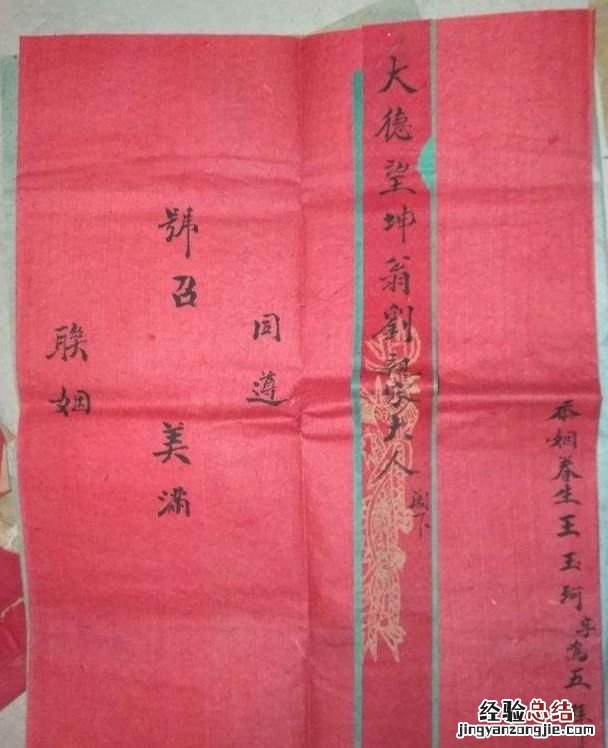 忝姻眷生王玉珂字五
大德望坤翁劉親家大人閣下
同遵
號召美滿
聯姻
经验总结
jingyanzongjie.com